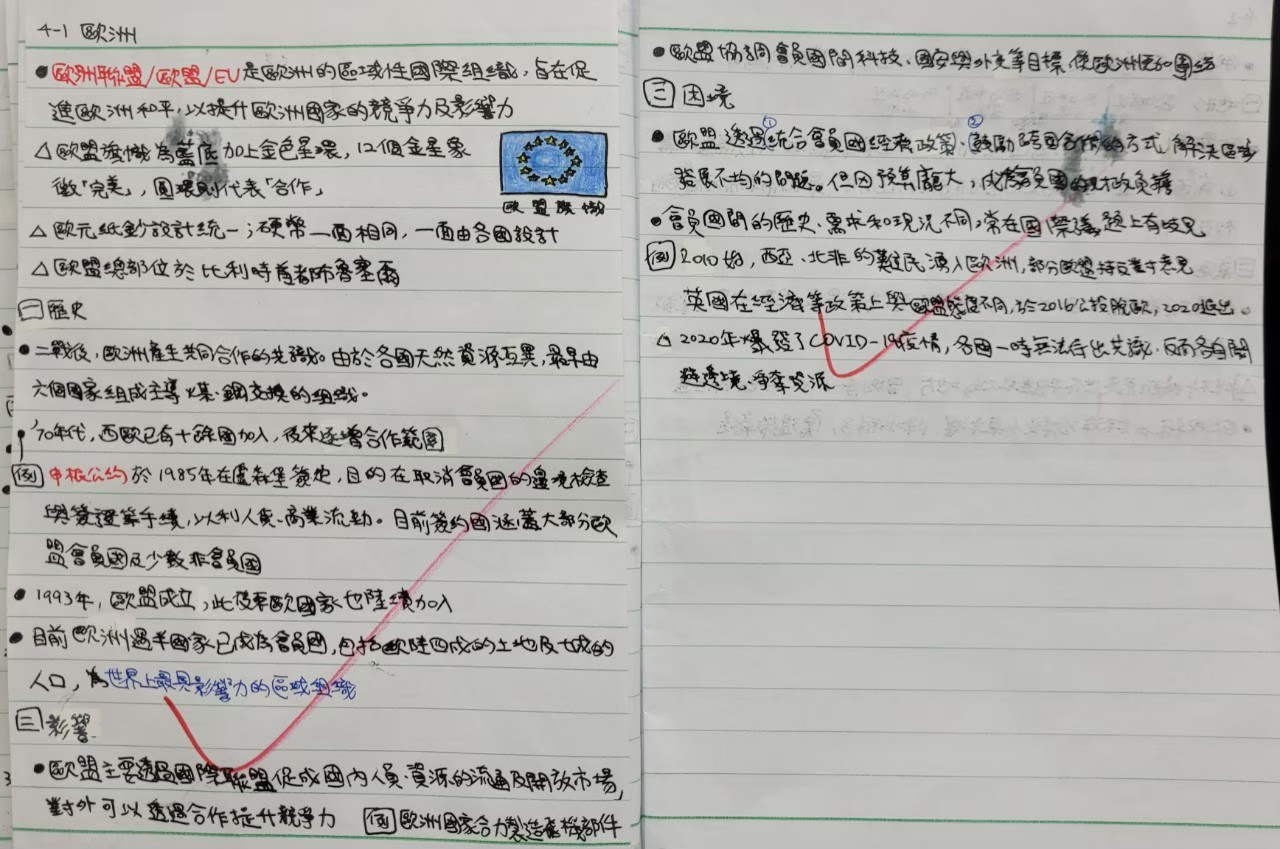 4-1 歐洲
• 歐洲聯盟/歐盟/EU是歐洲的區域性國際組織,旨在促
進歐洲和平,以提升歐洲國家的競爭力及影響力
△歐盟旗幟為藍底加上金色星環,12個金星象
徵「完美」,圓環則代表「合作」
歐盟旗幟
△歐元紙鈔設計統一;硬幣一面相同,一面由各國設計
△歐盟總部位於比利時首都布魯塞爾
一 歷史
• 二戰後,歐洲產生共同合作的共識。由於各國天然資源互異,最早由
六個國家組成主導煤、鋼交換的組織。
'70年代,西歐已有十餘國加入,後來逐增合作範圍
例 申根公約於1985年在盧森堡簽定,目的在取消會員國的邊境檢查
與簽證等手續,以利人員、商業流動。目前簽約國涵蓋大部分歐
盟會員國及少數非會員國
• 1993年,歐盟成立,此後東歐國家也陸續加入
• 目前歐洲過半國家已成為會員國,包括歐陸四成的土地及七成的
人口,為世界上最具影響力的區域組織
二 影響
• 歐盟主要透過國際聯盟促成國內人員、資源的流通及開放市場,
對外可以透過合作提升競爭力 例 歐洲國家合力製造飛機部件
• 歐盟協調會員國間科技、國安與外交等目標,使歐洲更加團結
三 困境
• 歐盟透過①統合會員國經濟政策、②鼓勵跨國合作的方式,解決區域
發展不均的問題。但因預算龐大,成為會員國的財政負擔
• 會員國間的歷史、需求和現況不同,常在國際議題上有歧見
例 2010始,西亞、北非的難民湧入歐洲,部分歐盟持反對意見
英國在經濟等政策上與歐盟態度不同,於2016公投脫歐,2020退出。
△ 2020年爆發了COVID-19疫情,各國一時無法作出共識,反而各自關
閉邊境、爭奪資源